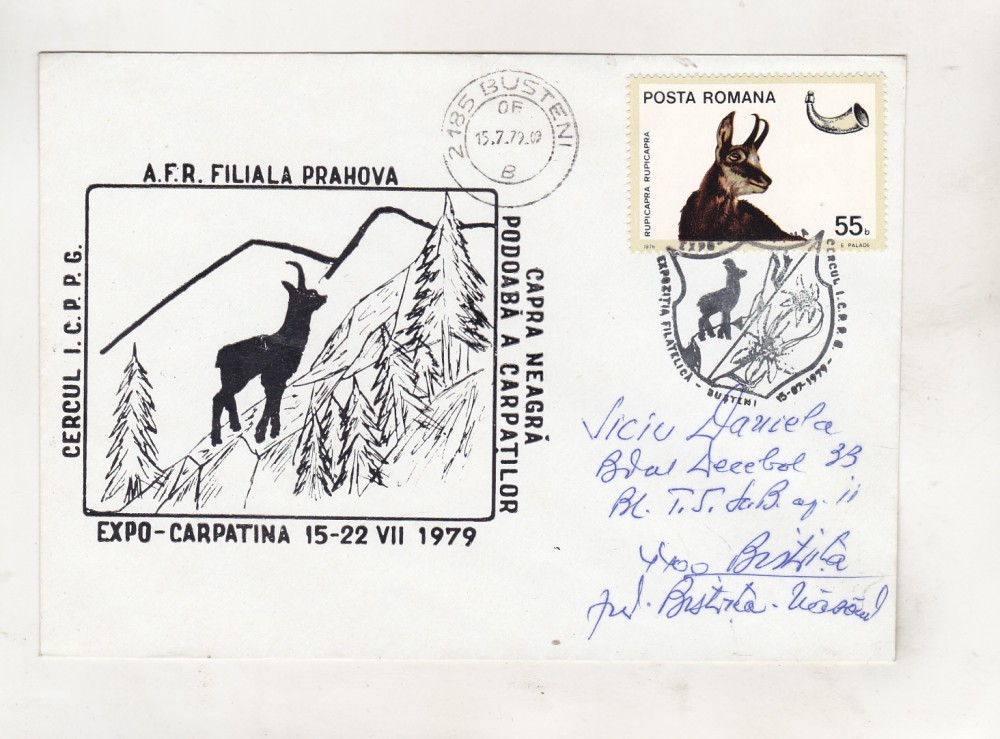 2185 BUSTENI
OF
15.7.79.09
B
POSTA ROMANA
RUPICAPRA RUPICAPRA
55b
1976
E. PALADE
A.F.R. FILIALA PRAHOVA
CERCUL I.C.P.P.G.
CAPRA NEAGRĂ
PODOABĂ A CARPAȚILOR
EXPO-CARPATINA 15-22 VII 1979
EXPO-
CERCUL I.C.P.P.G.
EXPOZIȚIA FILATELICĂ - BUSTENI
15-07-1979
Viciu Daniela
Bdul Decebal 33
Bl. T.S. sc. B. ap. 11
4400 Bistrița
jud. Bistrița-Năsăud